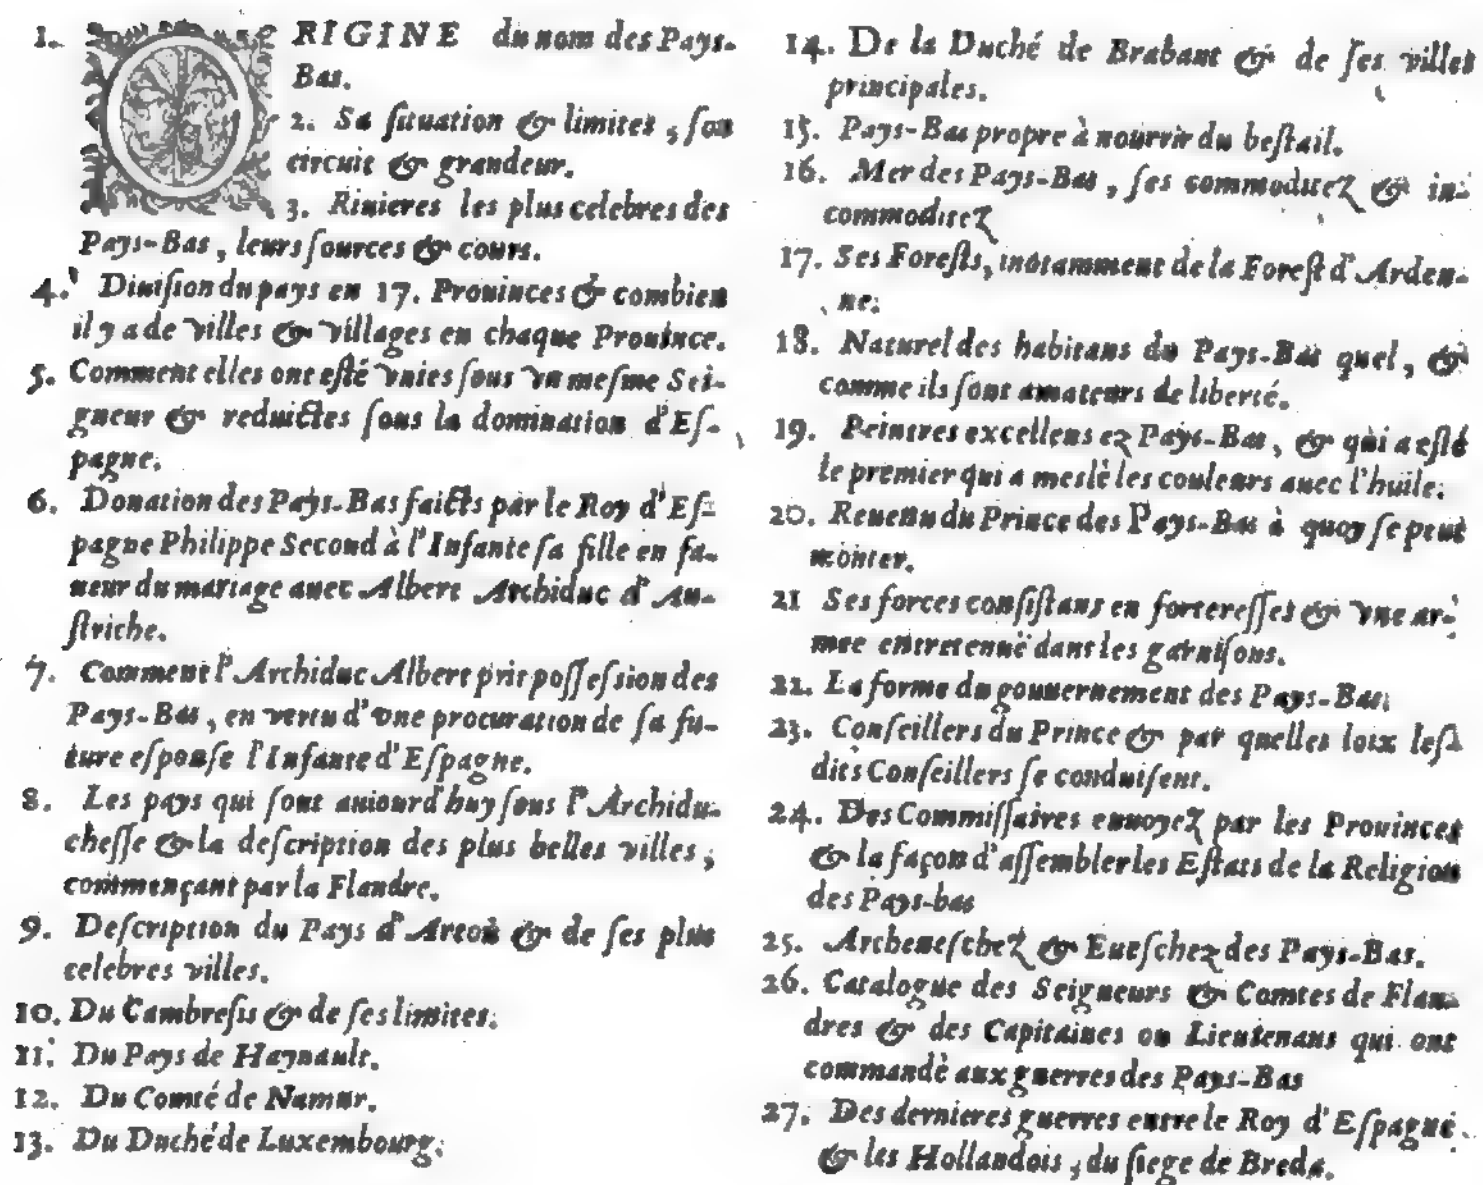 1. ORIGINE du nom des Pays-
Bas.
2. Sa ſituation & limites, ſon
circuit & grandeur.
3. Riuieres les plus celebres des
Pays-Bas, leurs ſources & cours.
4. Diuiſion du pays en 17. Prouinces & combien
il y a de villes & villages en chaque Prouince.
5. Comment elles ont eſté vnies ſous vn meſme Sei-
gneur & reduictes ſous la domination d'Eſ-
pagne.
6. Donation des Pays-Bas faicts par le Roy d'Eſ-
pagne Philippe Second à l'Infante ſa fille en fa-
ueur du mariage auec Albert Archiduc d'Au-
ſtriche.
7. Comment l'Archiduc Albert prit poſſeſsion des
Pays-Bas, en vertu d'vne procuration de ſa fu-
ture eſpouſe l'Infante d'Eſpagne.
8. Les pays qui ſont auiourd'huy ſous l'Archidu-
cheſſe & la deſcription des plus belles villes,
commençant par la Flandre.
9. Deſcription du Pays d'Artois & de ſes plus
celebres villes.
10. Du Cambreſis & de ſes limites.
11. Du Pays de Haynault.
12. Du Comté de Namur.
13. Du Duché de Luxembourg.
14. De la Duché de Brabant & de ſes villes
principales.
15. Pays-Bas propre à nourrir du beſtail.
16. Mer des Pays-Bas, ſes commoditez & in-
commoditez
17. Ses Foreſts, notamment de la Foreſt d'Arden-
ne.
18. Naturel des habitans du Pays-Bas quel, &
comme ils ſont amateurs de liberté.
19. Peintres excellens ez Pays-Bas, & qui a eſté
le premier qui a meslè les couleurs auec l'huile.
20. Reuenu du Prince des Pays-Bas à quoy ſe peut
monter.
21 Ses forces conſiſtans en fortereſſes & vne ar-
mee entretenuë dans les garniſons.
22. La forme du gouuernement des Pays-Bas.
23. Conſeillers du Prince & par quelles loix leſ-
dits Conſeillers ſe conduiſent.
24. Des Commiſſaires enuoyez par les Prouinces
& la façon d'aſſembler les Eſtats de la Religion
des Pays-bas
25. Archeueſchez & Eueſchez des Pays-Bas.
26. Catalogue des Seigneurs & Comtes de Flan-
dres & des Capitaines ou Lieutenans qui ont
commandè aux guerres des Pays-Bas
27. Des dernieres guerres entre le Roy d'Eſpagne
& les Hollandois, du ſiege de Breda.